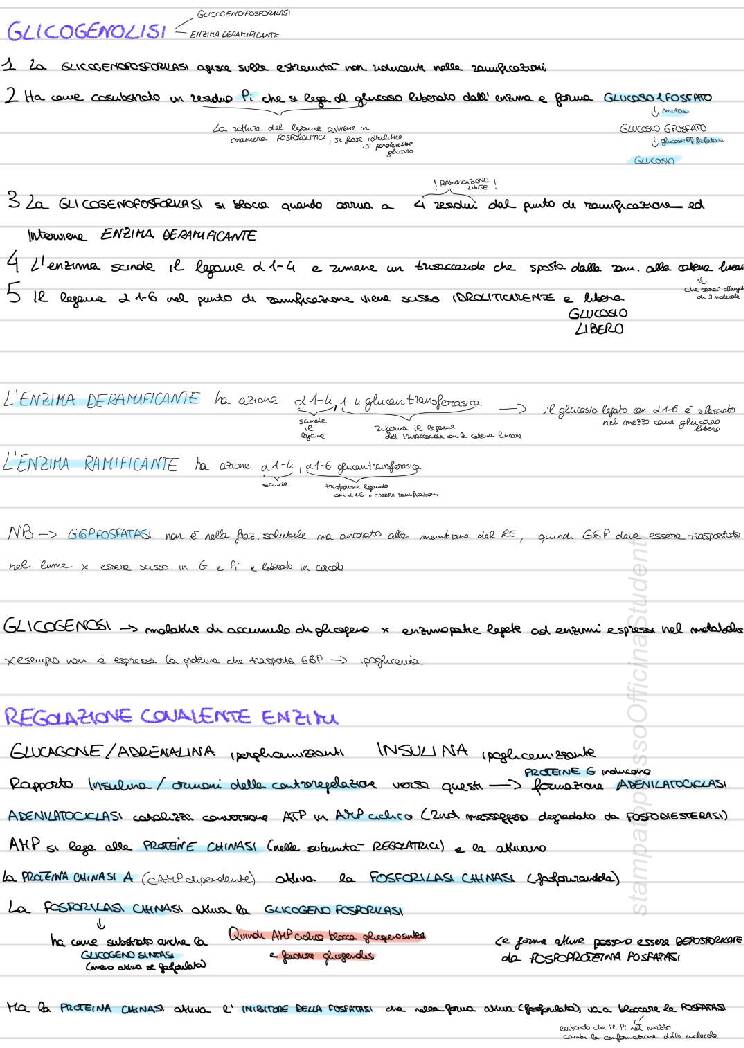 GLICOGENOLISI
GLICOGENOFOSFORILASI
ENZIMA DERAMIFICANTE
1 La GLICOGENOFOSFORILASI agisce sulle estremità non riducenti nelle ramificazioni
2 Ha come cosubstrato un residuo Pi che si lega al glucosio liberato dall'enzima e forma GLUCOSIO 1 FOSFATO
La rottura del legame avviene in
maniera FOSFOROLITICA,
GLUCOSIO 6 FOSFATO
GLUCOSIO
3 La GLICOGENOFOSFORILASI si blocca quando arriva a 4 residui dal punto di ramificazione ed
interviene ENZIMA DERAMIFICANTE
4 L'enzima scinde il legame α 1-4 e rimane un trisaccaride che sposta dalla ram. alla catena
5 Il legame α 1-6 nel punto di ramificazione viene scisso IDROLITICAMENTE e libera
GLUCOSIO
LIBERO
L'ENZIMA DERAMIFICANTE ha azione α 1-4, 1 4 glucantransferasica → il glucosio legato con α 1-6 è
nel mezzo come glucosio
libero
scinde
il
legame
L'ENZIMA RAMIFICANTE ha azione α 1-4, α 1-6 glucantransferasica
scinde
NB → G6PFOSFATASI non è nella faz. solubile ma ancorato alla membrana del RE, quindi G6P deve essere trasportato
nel lume x essere scisso in G e Pi e liberato in circolo
GLICOGENOSI → malattie di accumulo di glicogeno x enzimopatie legate ad enzimi espressi nel metabolismo
x esempio non è espressa la proteina che trasporta G6P → ipoglicemia
REGOLAZIONE COVALENTE ENZIMI
GLUCAGONE/ADRENALINA iperglicemizzanti INSULINA ipoglicemizzante
Rapporto Insulina / ormoni della controregolazione verso questi → PROTEINE G inducono formazione ADENILATOCICLASI
ADENILATOCICLASI catalizza conversione ATP in AMP ciclico (2nd messaggero degradato da FOSFODIESTERASI)
AMP si lega alle PROTEINE CHINASI (nelle subunità REGOLATRICI) e la attivano
La PROTEINA CHINASI A (cAMP dipendente) attiva la FOSFORILASI CHINASI (fosforilandola)
La FOSFORILASI CHINASI attiva la GLICOGENO FOSFORILASI
ha come substrato anche la
GLICOGENO SINTASI
(meno attiva se fosforilata)
Quindi AMP ciclico blocca glicogenosintesi
e favorisce glicogenolisi
Le forme attive possono essere DEFOSFORILATE
da FOSFOPROTEINA FOSFATASI
Ma la PROTEINA CHINASI attiva l'INIBITORE DELLA FOSFATASI che nella forma attiva (fosforilata) va a bloccare la FOSFATASI
stampaappassoOfficinaStudenti